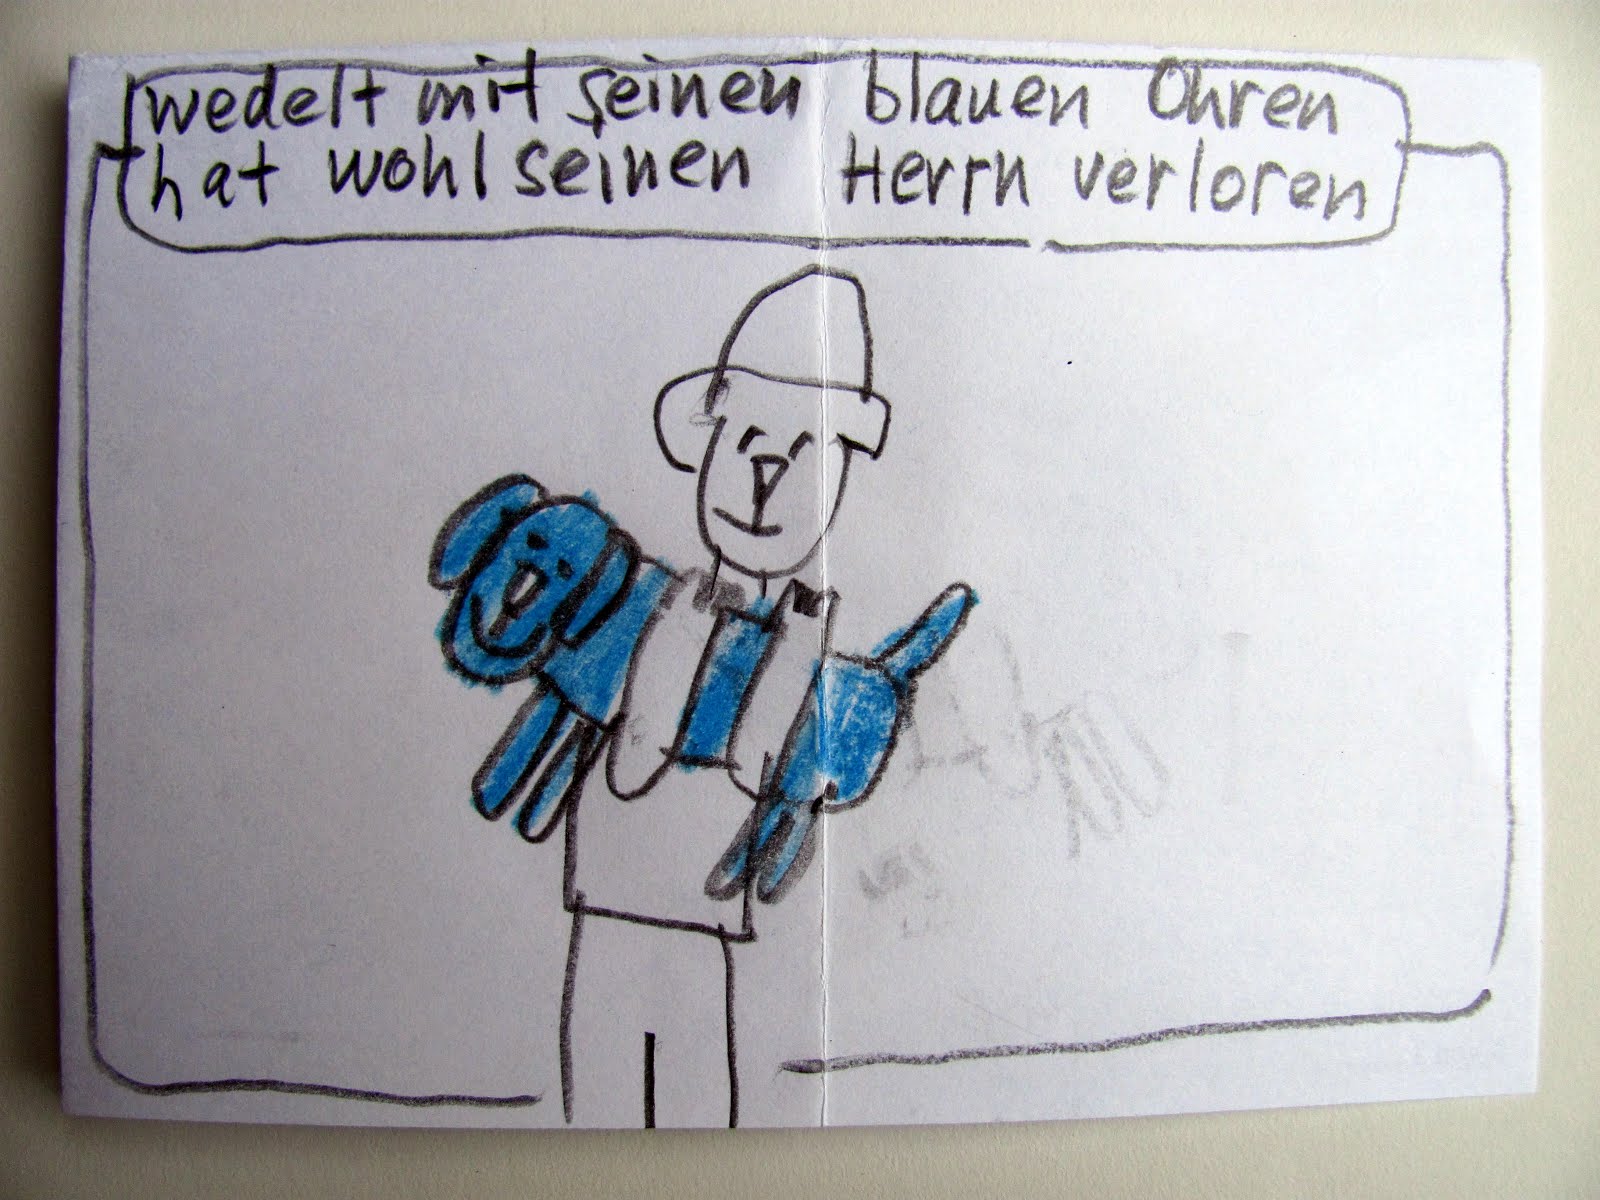 wedelt mit seinen blauen Ohren
hat wohl seinen Herrn verloren